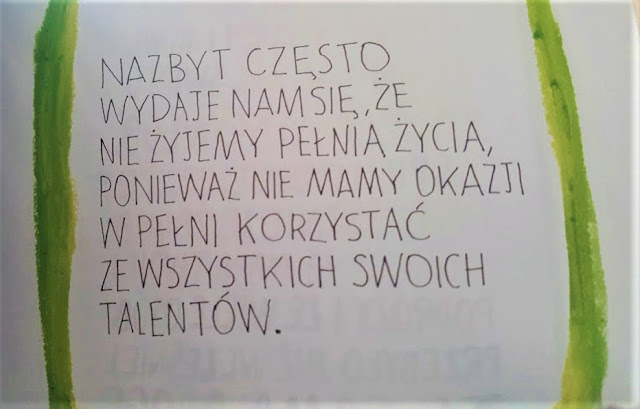 NAZBYT CZĘSTO
WYDAJE NAM SIĘ, ŻE
NIE ŻYJEMY PEŁNIĄ ŻYCIA,
PONIEWAŻ NIE MAMY OKAZJI
W PEŁNI KORZYSTAĆ
ZE WSZYSTKICH SWOICH
TALENTÓW.